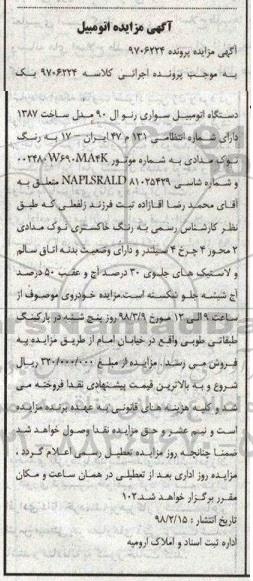 آگهی مزایده اتومبیل
آگهی مزایده پرونده ۹۷۰۶۲۲۴
به موجب پرونده اجرائی کلاسه ۹۷۰۶۲۲۴ یک
دستگاه اتومبیل سواری رنو ال ۹۰ مدل ساخت ۱۳۸۷
دارای شماره انتظامی ۱۳۱ م ۴۷ ایران – ۱۷ به رنگ
نوک مدادی به شماره موتور
و شماره شاسی NAPLSRALD ۸۱۰۲۵۴۲۹ متعلق به
آقای محمد رضا آقازاده ثبت فرزند زلفعلی که طبق
نظر کارشناس رسمی به رنگ خاکستری نوک مدادی
۲ محور ۴ چرخ ۴ سیلندر و دارای وضعیت بدنه اتاق سالم
و لاستیک های جلوی ۳۰ درصد آج و عقب ۵۰ درصد
آج شیشه جلو شکسته است.مزایده خودروی موصوف از
ساعت ۹ الی ۱۲ مورخ ۹۸/۳/۹ روز پنج شنبه در پارکینگ
طبقاتی طوبی واقع در خیابان امام از طریق مزایده به
فروش می رسد . مزایده از مبلغ ۳۲۰/۰۰۰/۰۰۰ ریال
شروع و به بالاترین قیمت پیشنهادی نقدا فروخته می
شد و کلیه هزینه های قانونی به عهده برنده مزایده
است و نیم عشر و حق مزایده نقدا وصول خواهد شد
ضمنا چنانچه روز مزایده تعطیل رسمی اعلام گردد ،
مزایده روز اداری بعد از تعطیلی در همان ساعت و مکان
مقرر برگزار خواهد شد.۱۰۲
تاریخ انتشار : ۹۸/۲/۱۵
اداره ثبت اسناد و املاک ارومیه